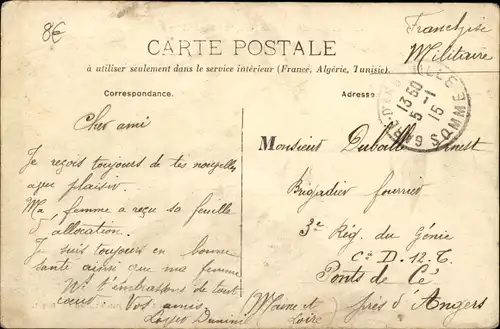 8€
Franchise
Militaire
CARTE POSTALE
à utiliser seulement dans le service intérieur (France, Algérie, Tunisie).
Correspondance.
Adresse
13 50
5 - 1
15
SOMME
Cher ami
Je reçois toujours de tes nouvelles
avec plaisir.
Ma femme a reçu sa feuille
d'allocation.
Je suis toujours en bonne
santé ainsi que ma femme
t'embrassons de tout
cœur. Vos amis
Monsieur Ernest
Brigadier fourrier
3e Rég. du Génie
Cie D. 12. T.
Ponts de Cé
près d'Angers
(Maine et
Loire)